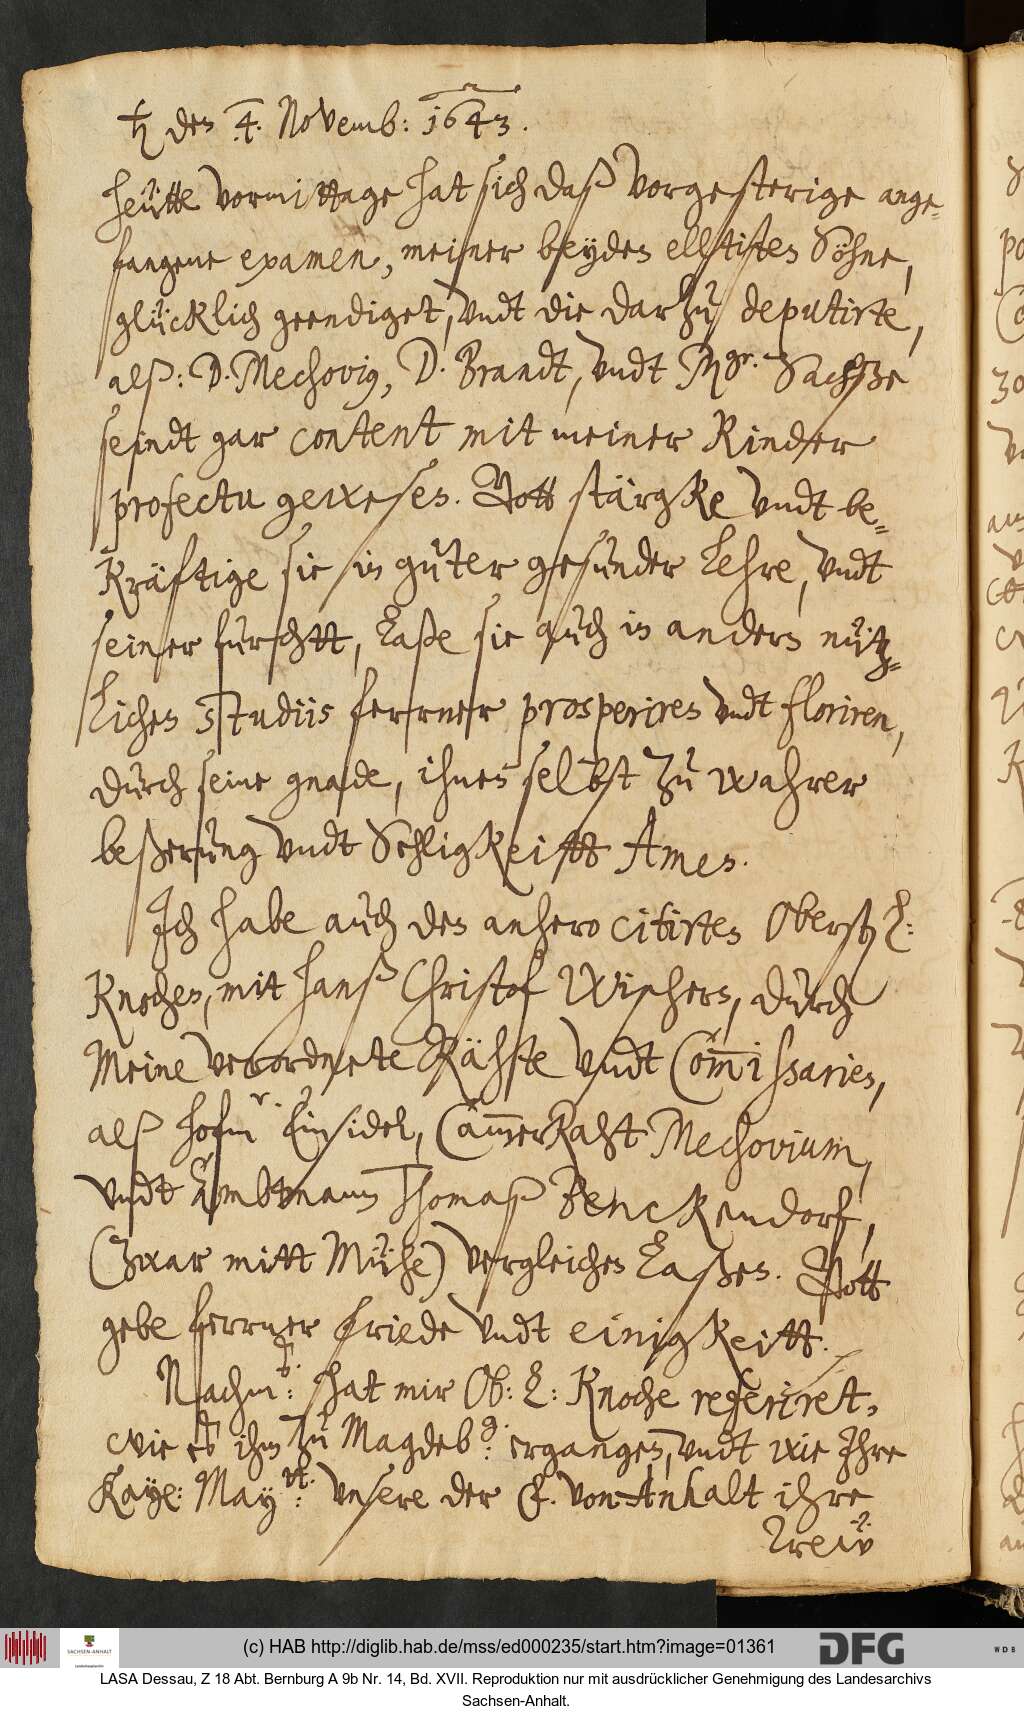 ♄ den 4. Novemb: 1643.
Heütte vormittage hat sich daß vorgesterige ange-
fangene examen, meiner beyden elltisten Söhne,
glücklich geendiget, vndt die darzu deputirte,
alß: D. Mechovius, D. Brandt, vndt Mgr. Sachße
seindt gar content mit meiner Kinder
profectu gewesen. Gott stärgke vndt be-
kräftige sie in guter gesunder Lehre, vndt
seiner furchtt, Laße sie auch in andern nütz-
lichen Studiis ferrner prosperiren vndt floriren,
durch seine gnade, ihnen selbst zu wahrer
beßerung vndt Sehligkeitt Amen.
Ich habe auch den anhero citirten Oberst L:
Knochen, mit Hanß Christof Wischers, durch
Meine verordnete Rähte vndt Commissarien,
alß Hofmr. Einsidel, CammerRaht Mechovium,
vndt Ambtmann Thomaß Benckendorf,
(zwar mitt Mühe) vergleichen Laßen. Gott
gebe ferrner friede vndt einigkeitt.
Nachmts: hat mir Ob: L: Knoche referiret,
wie es ihm zu Magdebg: ergangen, vndt wie Ihre
Kayl: Maytt: vnsere der F. von Anhalt ihre
Trew
(c) HAB http://diglib.hab.de/mss/ed000235/start.htm?image=01361
SACHSEN-ANHALT
DFG
WDB
LASA Dessau, Z 18 Abt. Bernburg A 9b Nr. 14, Bd. XVII. Reproduktion nur mit ausdrücklicher Genehmigung des Landesarchivs
Sachsen-Anhalt.